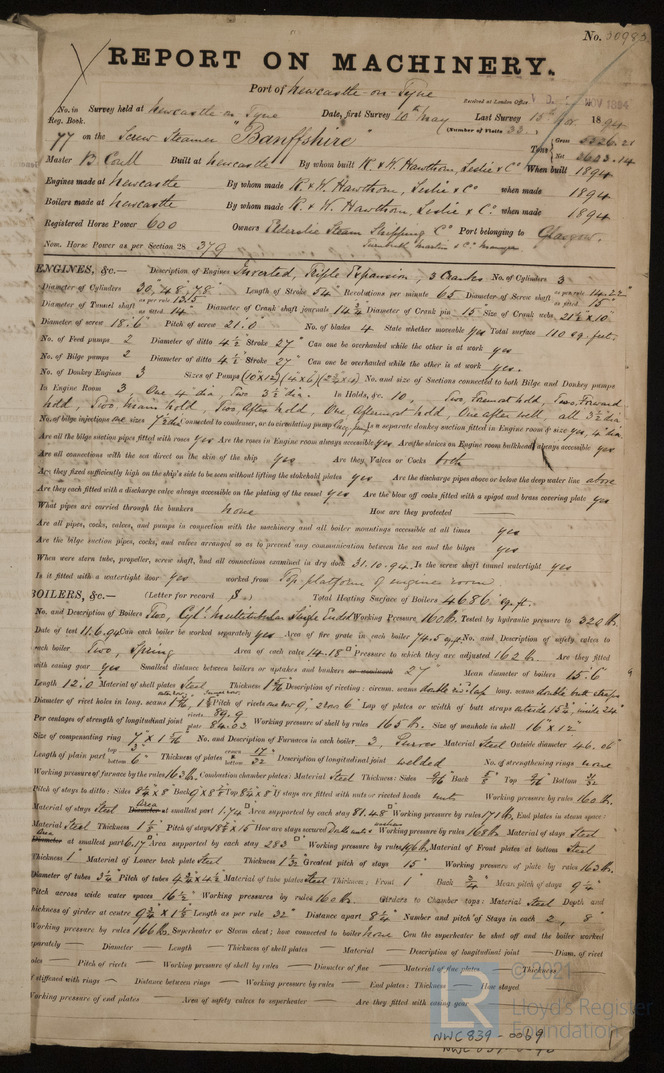 No. 3098
REPORT ON MACHINERY.
Port of Newcastle on Tyne
Received at London Office NOV 1894
No. in Survey held at Newcastle on Tyne Date, first Survey 10th May Last Survey 15th 1894
Reg. Book. (Number of Visits 33
77 on the Screw Steamer "Banffshire" Tons Gross Net 2623.14
Master Built at Newcastle By whom built R. & W. Hawthorn, Leslie & Co When built 1894
Engines made at Newcastle By whom made R. & W. Hawthorn, Leslie & Co when made 1894
Boilers made at Newcastle By whom made R. & W. Hawthorn, Leslie & Co. when made 1894
Registered Horse Power 600 Owners Elderslie Steam Shipping Co Port belonging to Glasgow.
Nom. Horse Power as per Section 28 379 Turnbull Martin & Co Managers
ENGINES, &c.— Description of Engines Inverted, Triple Expansion, 3 Cranks No. of Cylinders 3
Diameter of Cylinders 30", 48", 78" Length of Stroke 54" Revolutions per minute 65 Diameter of Screw shaft as per rule as fitted 15"
Diameter of Tunnel shaft as per rule 13.5 as fitted 14" Diameter of Crank shaft journals 14 3/4 Diameter of Crank pin 15" Size of Crank webs 21 1/2 x 10"
Diameter of screw 18.6 Pitch of screw 21.0 No. of blades 4 State whether moveable yes Total surface 110 sq. feet.
No. of Feed pumps 2 Diameter of ditto 4 1/2 Stroke 27" Can one be overhauled while the other is at work yes
No. of Bilge pumps 2 Diameter of ditto 4 1/2 Stroke 27" Can one be overhauled while the other is at work yes.
No. of Donkey Engines 3 Sizes of Pumps (10x12) (4x6) No. and size of Suctions connected to both Bilge and Donkey pumps
In Engine Room 3, One 4" dia, Two 3 1/2 dia. In Holds, &c. 10, Two, Foremost hold, Two, Forward
hold, Two, Main hold, Two, After hold, One Aftermost hold, One after well, all 3 1/2 dia
No. of bilge injections sizes 7 1/2 dia Connected to condenser, or to circulating pump Is a separate donkey suction fitted in Engine room & size yes, 4" dia
Are all the bilge suction pipes fitted with roses yes Are the roses in Engine room always accessible yes Are the sluices on Engine room bulkheads always accessible yes
Are all connections with the sea direct on the skin of the ship yes Are they Valves or Cocks both
Are they fixed sufficiently high on the ship's side to be seen without lifting the stokehold plates yes Are the discharge pipes above or below the deep water line above
Are they each fitted with a discharge valve always accessible on the plating of the vessel yes Are the blow off cocks fitted with a spigot and brass covering plate yes
What pipes are carried through the bunkers none How are they protected —
Are all pipes, cocks, valves, and pumps in connection with the machinery and all boiler mountings accessible at all times yes
Are the bilge suction pipes, cocks, and valves arranged so as to prevent any communication between the sea and the bilges yes
When were stern tube, propeller, screw shaft, and all connections examined in dry dock 31.10.94 Is the screw shaft tunnel watertight yes
Is it fitted with a watertight door yes worked from Top platform of engine room.
BOILERS, &c.— (Letter for record S.) Total Heating Surface of Boilers 4686 sq. ft.
No. and Description of Boilers Two, Cyl. Multitubular Single Ended Working Pressure 160 lb. Tested by hydraulic pressure to 320 lb.
Date of test 11.6.94 Can each boiler be worked separately yes Area of fire grate in each boiler 74.5 sq. ft. No. and Description of safety valves to
each boiler Two, Spring Area of each valve 14.18 Pressure to which they are adjusted 162 lb. Are they fitted
with easing gear yes Smallest distance between boilers or uptakes and bunkers or woodwork 27" Mean diameter of boilers 15.6
Length 12.0 Material of shell plates Steel Thickness Description of riveting: circum. seams double riv. lap long. seams double butt straps
Diameter of rivet holes in long. seams Pitch of rivets Lap of plates or width of butt straps outside 15 3/4, inside 24"
Per centages of strength of longitudinal joint rivets 89.9 plate 84.03 Working pressure of shell by rules 165 lb. Size of manhole in shell 16" x 12"
Size of compensating ring 7" x 1 5/16 No. and Description of Furnaces in each boiler 3, Purves Material Steel Outside diameter 46.06"
Length of plain part top 3" bottom 6" Thickness of plates crown 17/32 bottom Description of longitudinal joint welded No. of strengthening rings none
Working pressure of furnace by the rules 163 lb. Combustion chamber plates: Material Steel Thickness: Sides 9/16 Back 5/8 Top 9/16 Bottom
Pitch of stays to ditto: Sides 8 3/4 x 8 Back 9 x 8 1/2 Top 8 3/4 x 8 If stays are fitted with nuts or riveted heads nuts Working pressure by rules 160 lb.
Material of stays Steel Area at smallest part 1.74 Area supported by each stay 81.48 Working pressure by rules 171 lb. End plates in steam space:
Material Steel Thickness 1 1/8 Pitch of stays 18 3/4 x 15" How are stays secured Double nuts & washers Working pressure by rules 168 lb. Material of stays Steel
Area Diameter at smallest part 6.17 Area supported by each stay 283 Working pressure by rules Material of Front plates at bottom Steel
Thickness 1" Material of Lower back plate Steel Thickness Greatest pitch of stays 15" Working pressure of plate by rules 163 lb.
Diameter of tubes 3 1/4" Pitch of tubes Material of tube plates Steel Thickness: Front 1" Back 3/4" Mean pitch of stays 9 1/4
Pitch across wide water spaces 16 1/2" Working pressures by rules 160 lb. Girders to Chamber tops: Material Steel Depth and
thickness of girder at centre 9 3/4 x 1 5/8 Length as per rule 32" Distance apart 8 3/4" Number and pitch of Stays in each 2, 8"
Working pressure by rules 166 lb. Superheater or Steam chest; how connected to boiler none Can the superheater be shut off and the boiler worked
separately — Diameter — Length — Thickness of shell plates — Material — Description of longitudinal joint — Diam. of rivet
holes — Pitch of rivets — Working pressure of shell by rules — Diameter of flue — Material of flue plates — Thickness —
If stiffened with rings — Distance between rings — Working pressure by rules — End plates: Thickness — How stayed
Working pressure of end plates — Area of safety valves to superheater — Are they fitted with easing gear —
© 2021
Lloyd's Register
Foundation
NWC839-0069